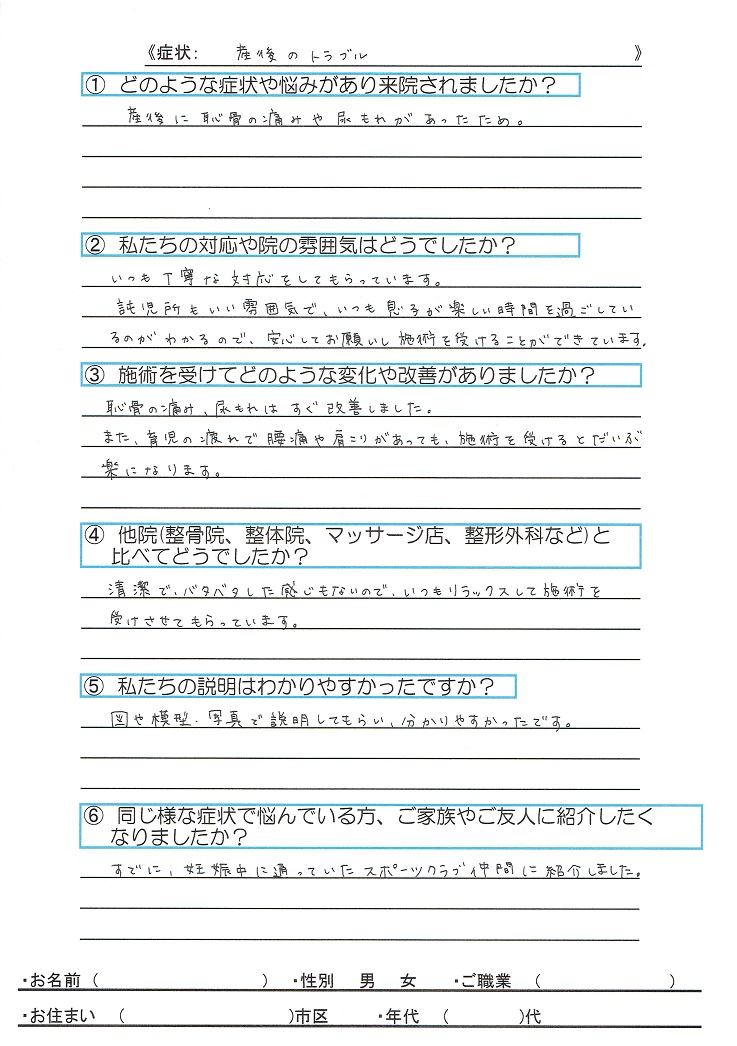 《症状: 産後のトラブル 》
① どのような症状や悩みがあり来院されましたか？
産後に恥骨の痛みや尿もれがあったため。
② 私たちの対応や院の雰囲気はどうでしたか？
いつも丁寧な対応をしてもらっています。
託児所もいい雰囲気で、いつも息子が楽しい時間を過ごしてい
るのがわかるので、安心してお願いし施術を受けることができています。
③ 施術を受けてどのような変化や改善がありましたか？
恥骨の痛み、尿もれはすぐ改善しました。
また、育児の疲れで腰痛や肩こりがあっても、施術を受けるとだいぶ
楽になります。
④ 他院(整骨院、整体院、マッサージ店、整形外科など)と
比べてどうでしたか？
清潔で、バタバタした感じもないので、いつもリラックスして施術を
受けさせてもらっています。
⑤ 私たちの説明はわかりやすかったですか？
図や模型・写真で説明してもらい、分かりやすかったです。
⑥ 同じ様な症状で悩んでいる方、ご家族やご友人に紹介したく
なりましたか？
すでに、妊娠中に通っていたスポーツクラブ仲間に紹介しました。
・お名前（ ） ・性別 男 女 ・ご職業 （ ）
・お住まい （ )市区 ・年代 （ )代